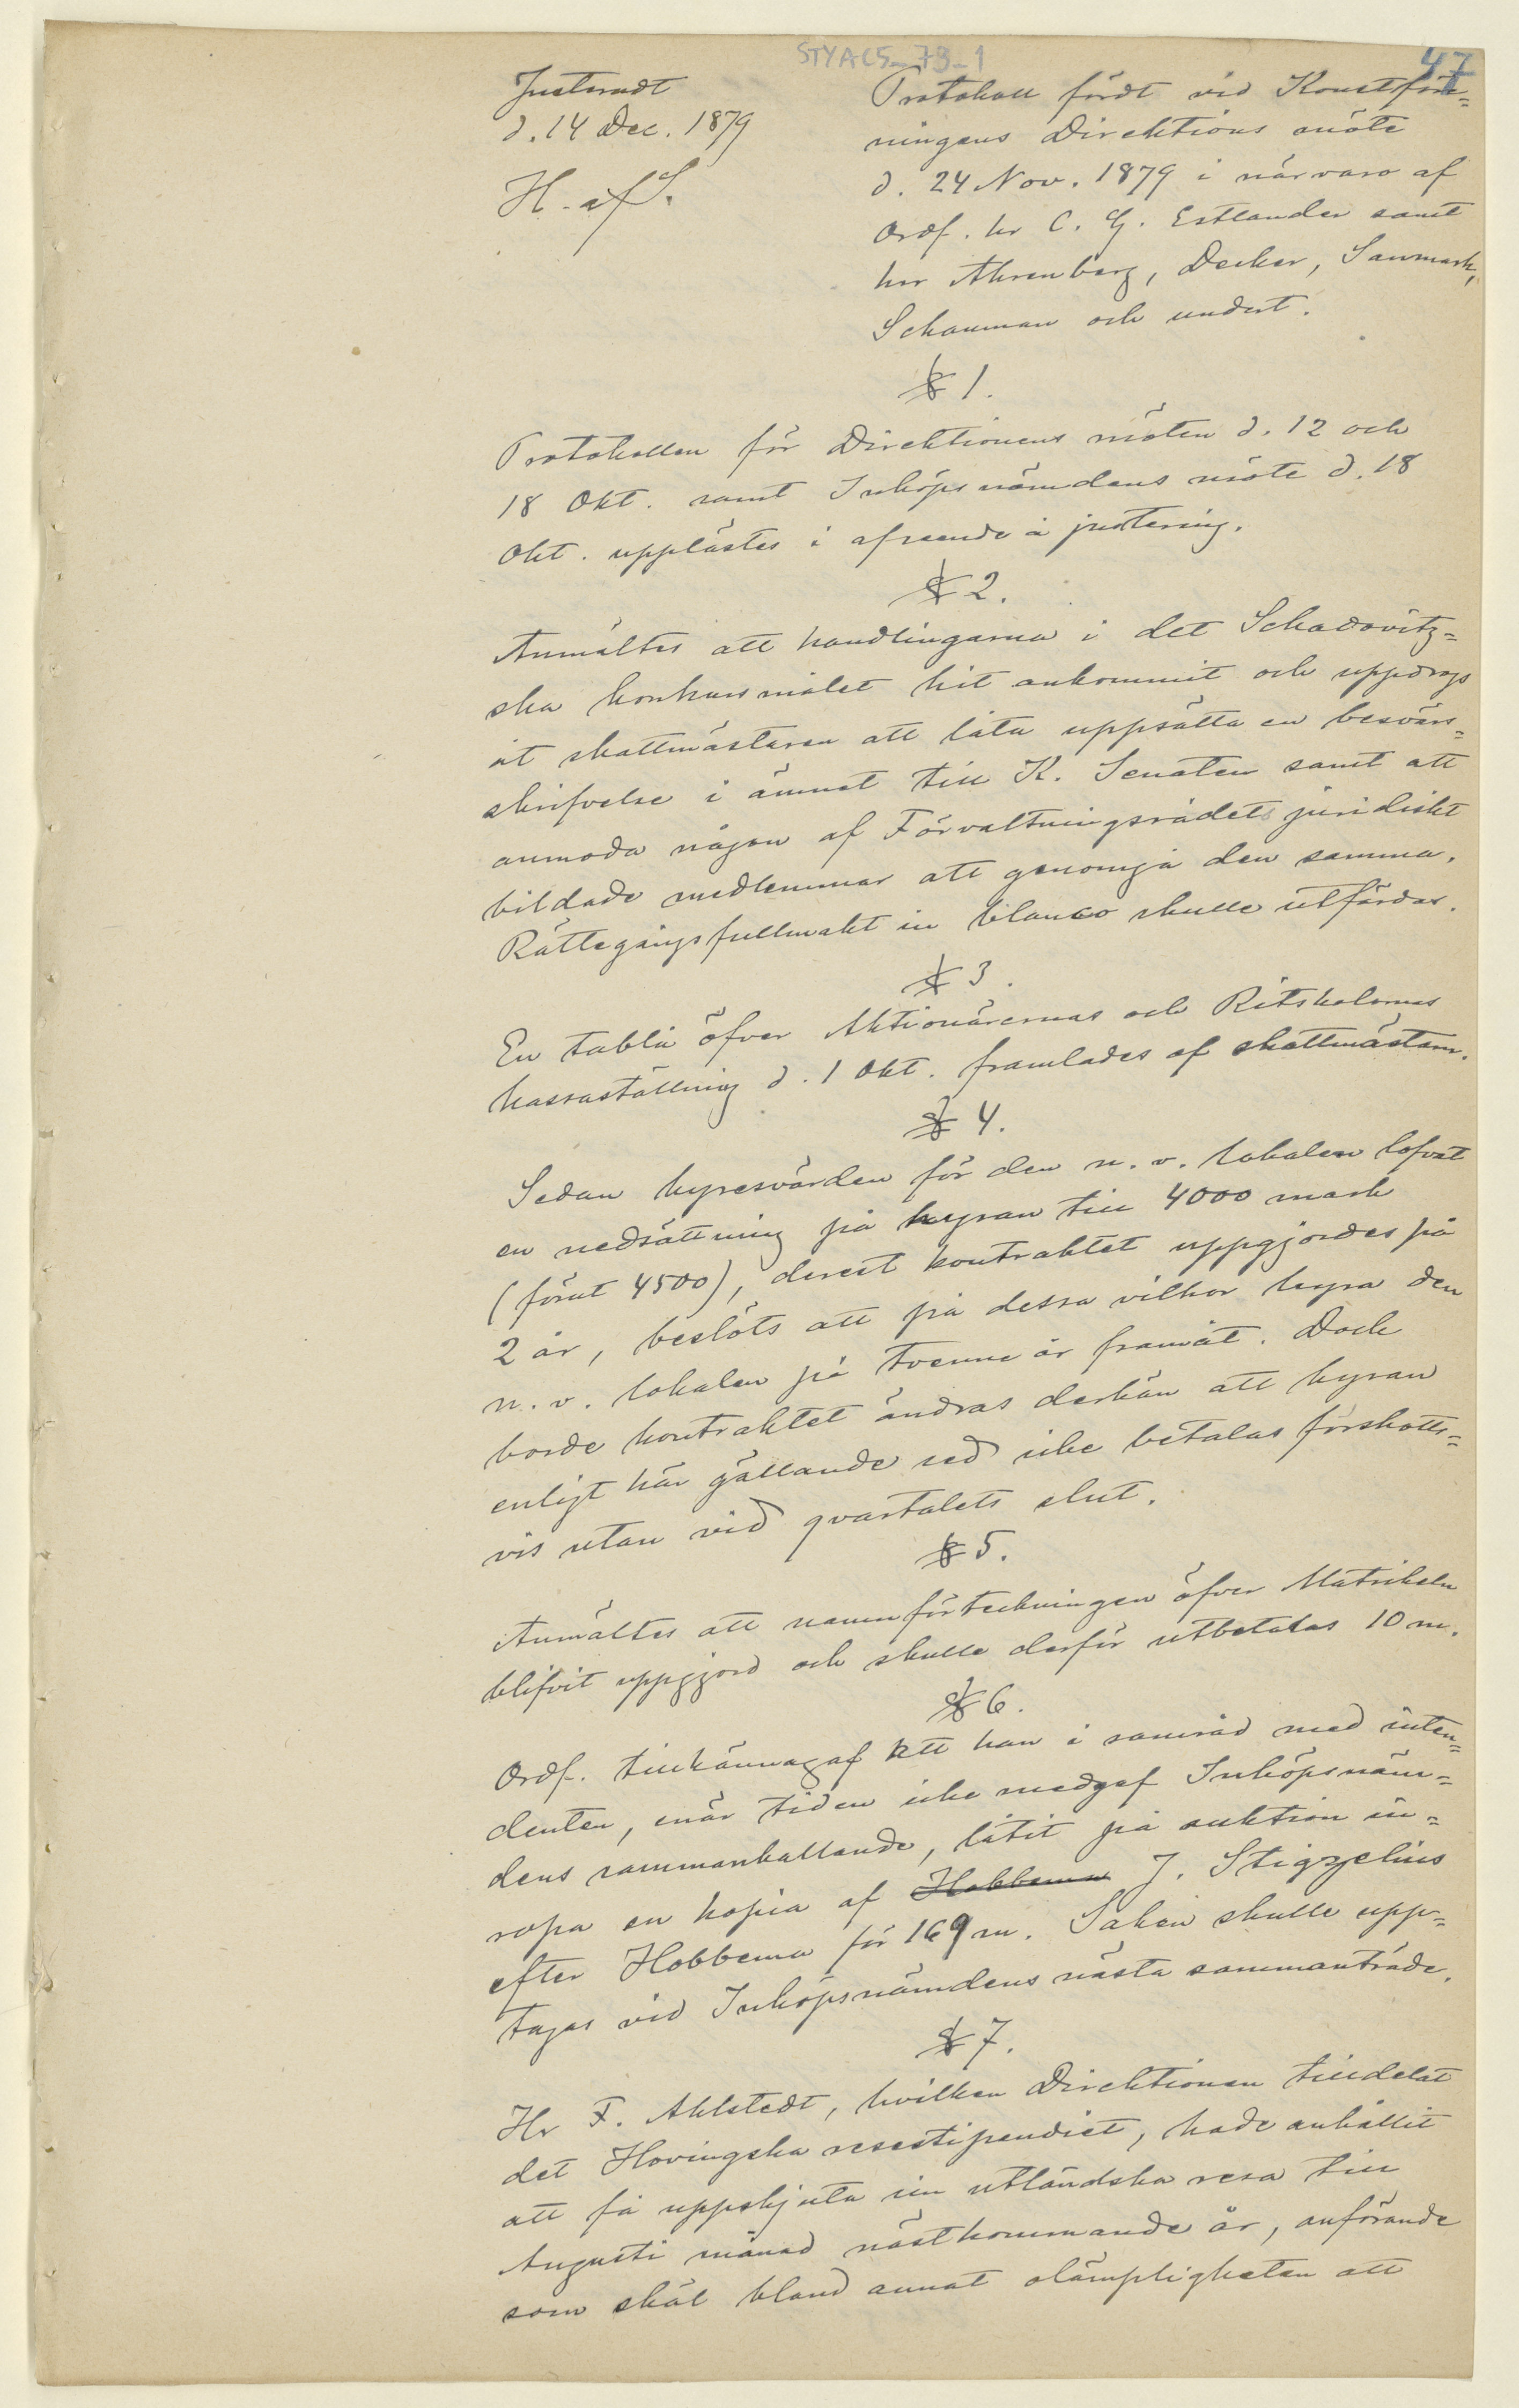 STYAC5_73_1
47
Justeradt
d. 14 Dec. 1879
H. af S.
Protokoll fördt vid Konstföre-
ningens Direktions möte
d. 24 Nov. 1879 i närvaro af
Ordf. hr C. G. Estlander samt
hrr Ahrenberg, Decker, Sanmark,
Schauman och undert.
§ 1.
Protokollen för Direktionens möten d. 12 och
18 Okt. samt Inköpsnämdens möte d. 18
Okt. upplästes i afseende å justering.
§ 2.
Anmältes att handlingarna i det Schadovitz-
ska konkursmålet hit ankommit och uppdrogs
åt skattmästaren att låta uppsätta en besvärs-
skrifvelse i ämnet till K. Senaten samt att
anmoda någon af Förvaltningsrådets juridiskt
bildade medlemmar att genomgå den samma.
Rättegångsfullmakt in blanco skulle utfärdas.
§ 3.
En tablå öfver Aktionärernas och Ritskolornas
kassaställning d. 1 Okt. framlades af skattmästarn.
§ 4.
Sedan hyresvärden för den n. v. lokalen lofvat
en nedsättning på hyran till 4000 mark
(förut 4500), derest kontraktet uppgjordes på
2 år, beslöts att på dessa vilkor hyra den
n. v. lokalen på tvenne år framåt. Dock
borde kontraktet ändras derhän att hyran
enligt här gällande sed icke betalas förskotts-
vis utan vid qvartalets slut.
§ 5.
Anmältes att namnförteckningen öfver Matrikeln
blifvit uppgjord och skulle derför utbetalas 10 m.
§ 6.
Ordf. tillkännagaf att han i samråd med inten-
denten, enär tiden icke medgaf Inköpsnäm-
dens sammankallande, låtit på auktion in-
ropa en kopia af Hobbema J. Stigzelius
efter Hobbema för 169 m. Saken skulle upp-
tagas vid Inköpsnämdens nästa sammanträde.
§ 7.
Hr F. Ahlstedt, hvilken Direktionen tilldelat
det Hovingska resestipendiet, hade anhållit
att få uppskjuta sin utländska resa till
Augusti månad nästkommande år, anförande
som skäl bland annat olämpligheten att